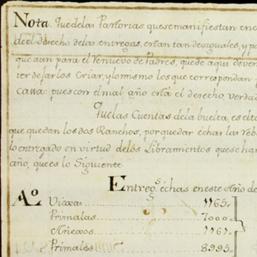 Nota. Que de la Pastorias que se manifiestan en c
de el dro echo de las entregas, estan tan desiguales, y p
que aun para Terreuevo de Padres, que se aqui obver
ter de far los Criar, y lo mismo los que correspondan
casa: pues con el mal año esta el derecho, verdad
Que las Cuentas de la buelta, es cita
que quedan los dos Ranchos, por quedar èchar las Yeb
lo entregado en virtud delos Libramientos que se han
año, que es lo Siguiente
Entreg.s èchas en este Año de
A.o Viexa 1165.
Primalas 7000.
Añexos 1161.
Primales 8995.